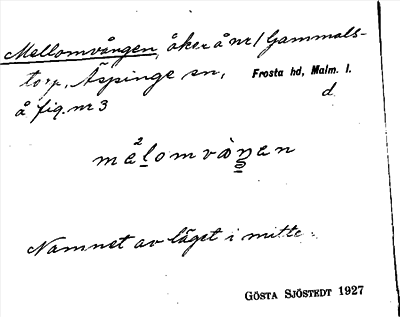 Mellomvången, åker å nr 1 Gammals-
torp, Äspinge sn, Frosta hd, Malm. l.
å fig. nr 3 d
2
melomvàŋen
Namnet av läget i mitte
GÖSTA SJÖSTEDT 1927